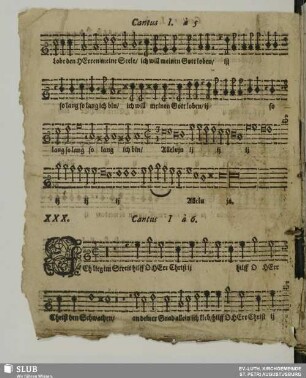 Cantus I. à 5
Lobe den HErren meine Seele/ ich will meinen Gott loben/ ij
so lang so lang ich bin/ ich will meinen Gott loben/ ij so
lang so lang so lang ich bin/ Alleluja ij ij ij
ij ij ij Allelu ja.
XXX. Cantus I à 6.
Ch lieg im Streit hilff O HErr Christ ij hilff O HErr
Christ den Schwachen/ an deiner Gnad allein ich kleb hilff O HErr Christ ij
SLUB
Wir führen Wissen.
EV.-LUTH. KIRCHGEMEINDE
ST. PETRI AUGUSTUSBURG